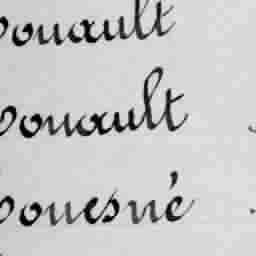 ouault
ouault
ouesné